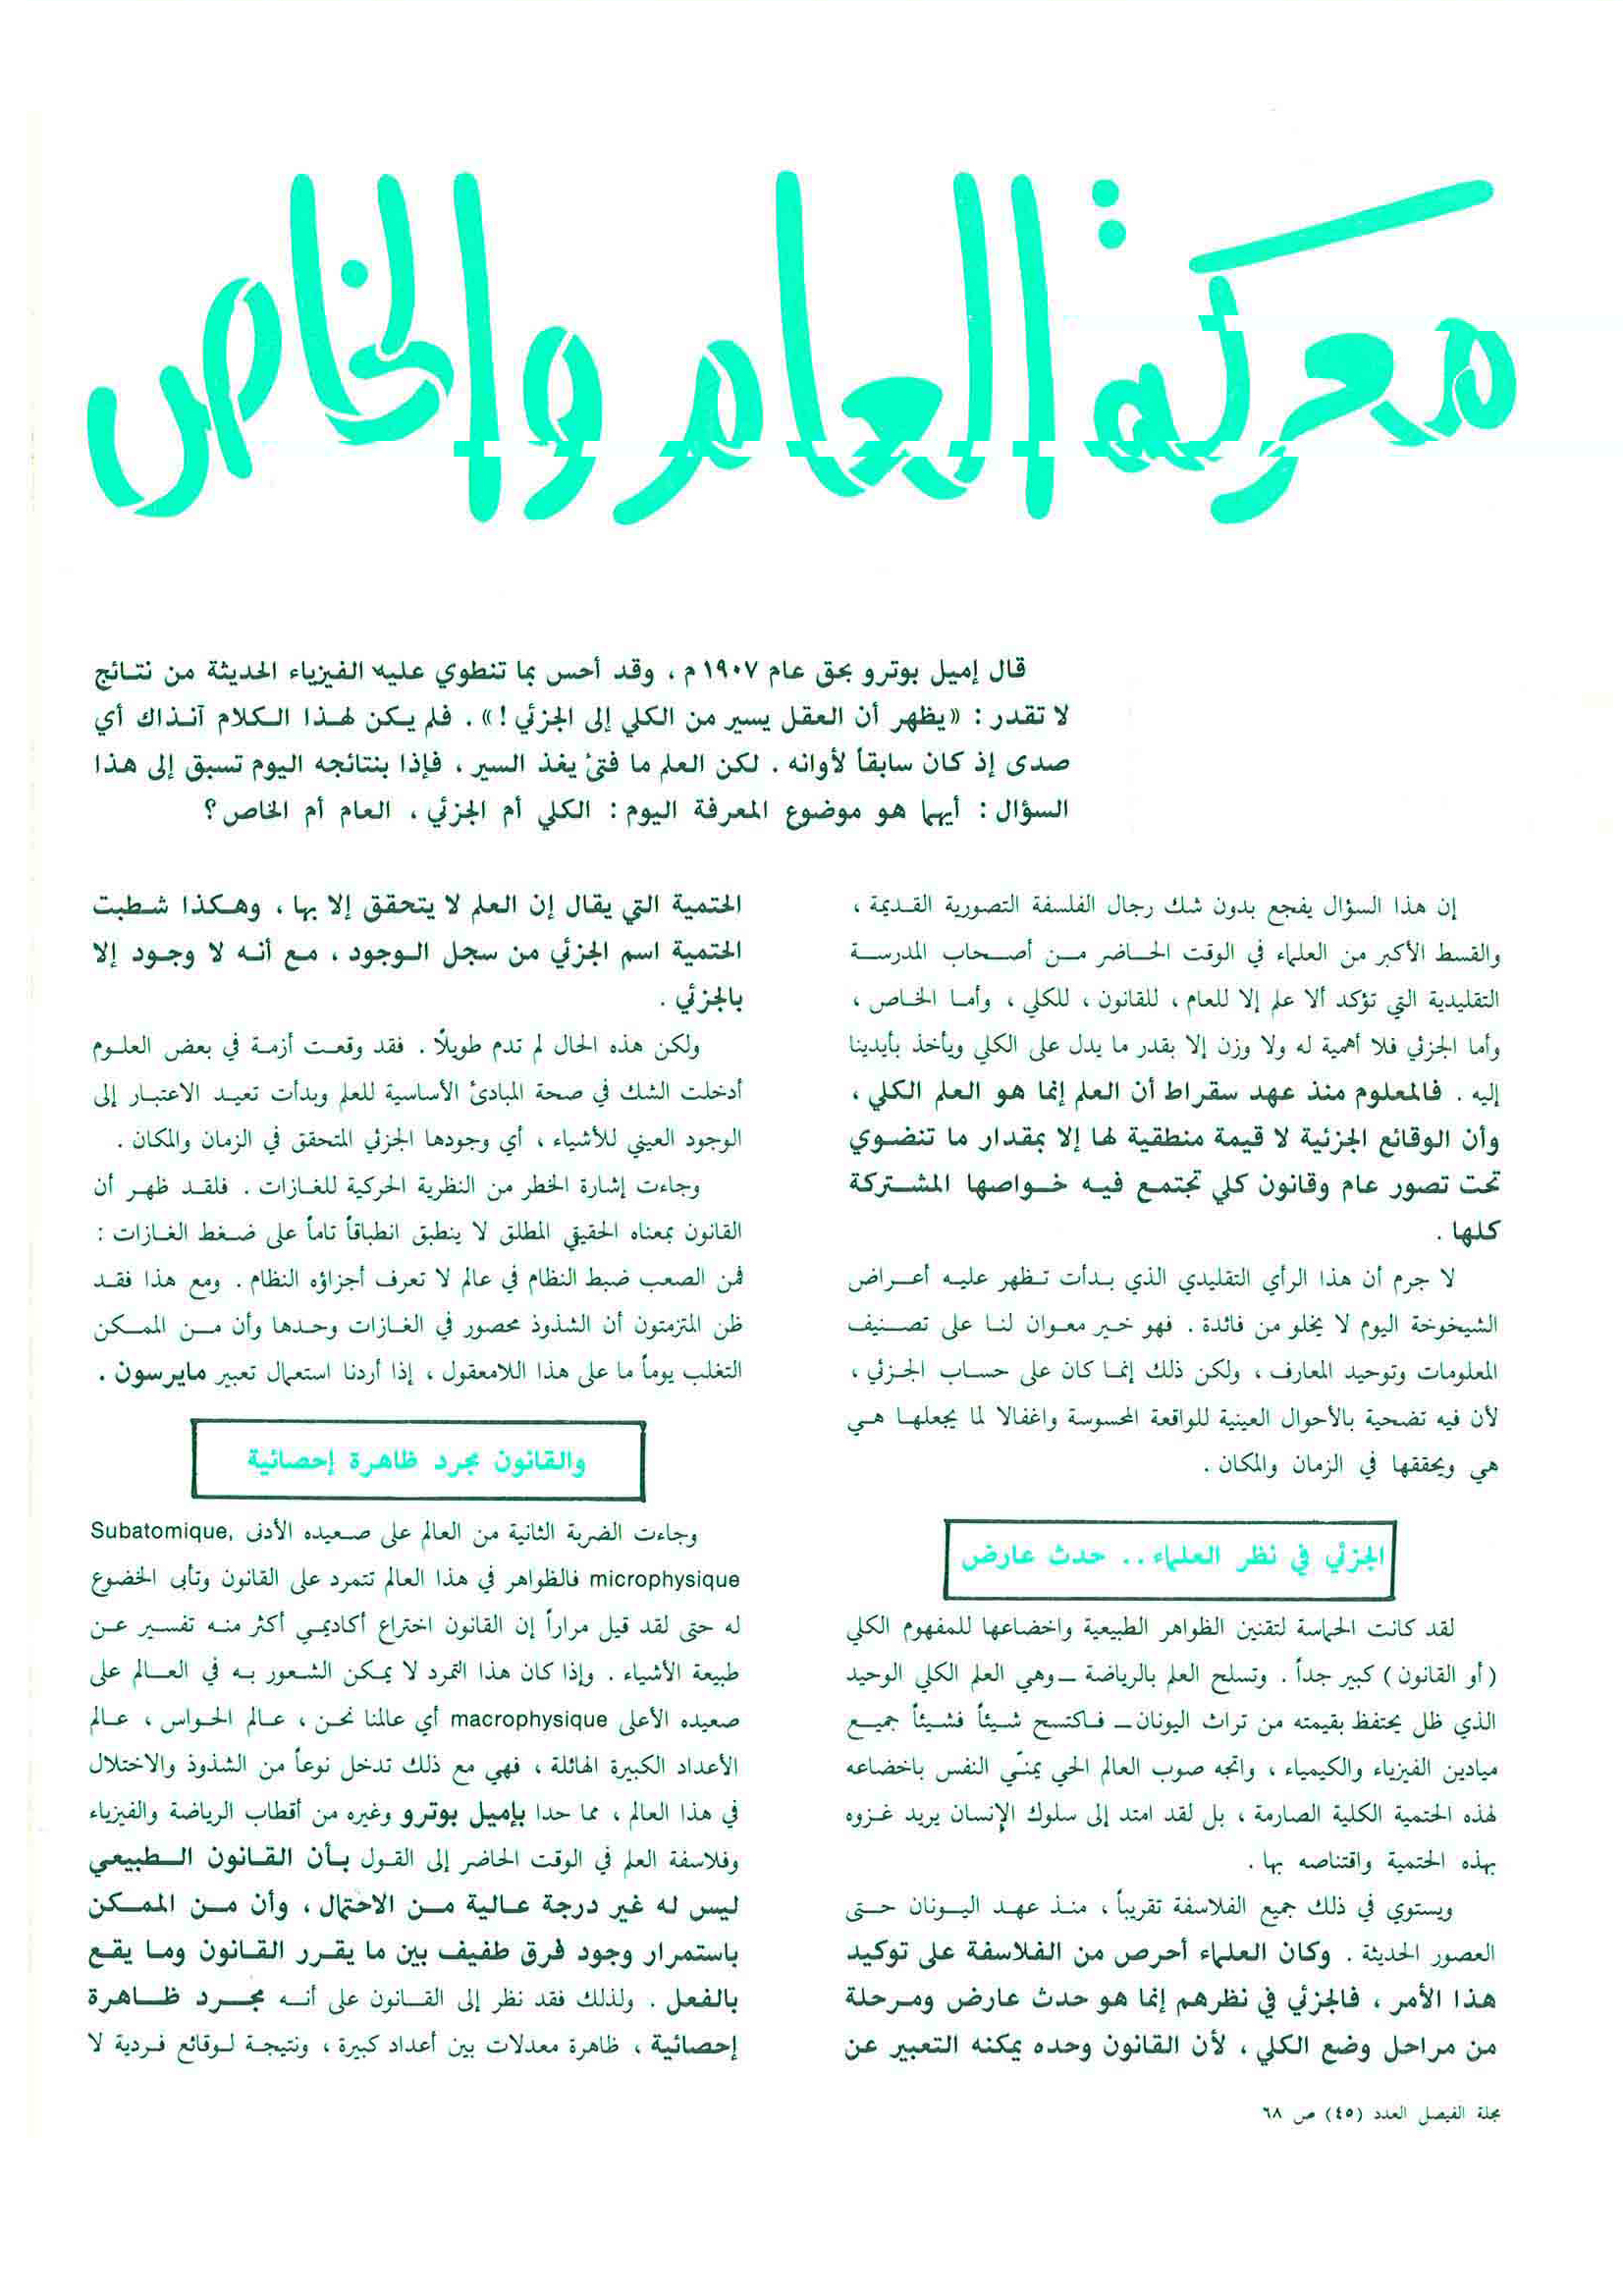 معركة العام والخاص
قال إميل بوترو بحق عام ١٩٠٧ م ، وقد أحس بما تنطوي عليه الفيزياء الحديثة من نتائج
لا تقدر : «يظهر أن العقل يسير من الكلي إلى الجزئي !» . فلم يكن لهذا الكلام آنذاك أي
صدى إذ كان سابقاً لأوانه . لكن العلم ما فتئ يغذ السير ، فإذا بنتائجه اليوم تسبق إلى هذا
السؤال : أيهما هو موضوع المعرفة اليوم : الكلي أم الجزئي ، العام أم الخاص ؟
إن هذا السؤال يفجع بدون شك رجال الفلسفة التصورية القديمة ،
والقسط الأكبر من العلماء في الوقت الحاضر من أصحاب المدرسة
التقليدية التي تؤكد ألا علم إلا للعام ، للقانون ، للكلي ، وأما الخاص ،
وأما الجزئي فلا أهمية له ولا وزن إلا بقدر ما يدل على الكلي ويأخذ بأيدينا
إليه . فالمعلوم منذ عهد سقراط أن العلم إنما هو العلم الكلي ،
وأن الوقائع الجزئية لا قيمة منطقية لها إلا بمقدار ما تنضوي
تحت تصور عام وقانون كلي تجتمع فيه خواصها المشتركة
كلها .
لا جرم أن هذا الرأي التقليدي الذي بدأت تظهر عليه أعراض
الشيخوخة اليوم لا يخلو من فائدة . فهو خير معوان لنا على تصنيف
المعلومات وتوحيد المعارف ، ولكن ذلك إنما كان على حساب الجزئي ،
لأن فيه تضحية بالأحوال العينية للواقعة المحسوسة واغفالا لما يجعلها هي
هي ويحققها في الزمان والمكان .
الجزئي في نظر العلماء .. حدث عارض
لقد كانت الحماسة لتقنين الظواهر الطبيعية واخضاعها للمفهوم الكلي
(أو القانون) كبير جداً . وتسلح العلم بالرياضة ــ وهي العلم الكلي الوحيد
الذي ظل يحتفظ بقيمته من تراث اليونان ــ فاكتسح شيئاً فشيئاً جميع
ميادين الفيزياء والكيمياء ، واتجه صوب العالم الحي يمنّي النفس باخضاعه
لهذه الحتمية الكلية الصارمة ، بل لقد امتد إلى سلوك الإنسان يريد غزوه
بهذه الحتمية واقتناصه بها .
ويستوي في ذلك جميع الفلاسفة تقريباً ، منذ عهد اليونان حتى
العصور الحديثة . وكان العلماء أحرص من الفلاسفة على توكيد
هذا الأمر ، فالجزئي في نظرهم إنما هو حدث عارض ومرحلة
من مراحل وضع الكلي ، لأن القانون وحده يمكنه التعبير عن
الحتمية التي يقال إن العلم لا يتحقق إلا بها ، وهكذا شطبت
الحتمية اسم الجزئي من سجل الوجود ، مع أنه لا وجود إلا
بالجزئي .
ولكن هذه الحال لم تدم طويلاً . فقد وقعت أزمة في بعض العلوم
أدخلت الشك في صحة المبادئ الأساسية للعلم وبدأت تعيد الاعتبار إلى
الوجود العيني للأشياء ، أي وجودها الجزئي المتحقق في الزمان والمكان .
وجاءت إشارة الخطر من النظرية الحركية للغازات . فلقد ظهر أن
القانون بمعناه الحقيقي المطلق لا ينطبق انطباقاً تاماً على ضغط الغازات :
فمن الصعب ضبط النظام في عالم لا تعرف أجزاؤه النظام . ومع هذا فقد
ظن المتزمتون أن الشذوذ محصور في الغازات وحدها وأن من الممكن
التغلب يوماً ما على هذا اللامعقول ، إذا أردنا استعمال تعبير مايرسون .
والقانون مجرد ظاهرة إحصائية
وجاءت الضربة الثانية من العالم على صعيده الأدنى Subatomique,
microphysique فالظواهر في هذا العالم تتمرد على القانون وتأبى الخضوع
له حتى لقد قيل مراراً إن القانون اختراع أكاديمي أكثر منه تفسير عن
طبيعة الأشياء . وإذا كان هذا التمرد لا يمكن الشعور به في العالم على
صعيده الأعلى macrophysique أي عالمنا نحن ، عالم الحواس ، عالم
الأعداد الكبيرة الهائلة ، فهي مع ذلك تدخل نوعاً من الشذوذ والاختلال
في هذا العالم ، مما حدا بإميل بوترو وغيره من أقطاب الرياضة والفيزياء
وفلاسفة العلم في الوقت الحاضر إلى القول بأن القانون الطبيعي
ليس له غير درجة عالية من الاحتمال ، وأن من الممكن
باستمرار وجود فرق طفيف بين ما يقرر القانون وما يقع
بالفعل . ولذلك فقد نظر إلى القانون على أنه مجرد ظاهرة
إحصائية ، ظاهرة معدلات بين أعداد كبيرة ، ونتيجة لوقائع فردية لا
مجلة الفيصل العدد (٤٥) ص ٦٨